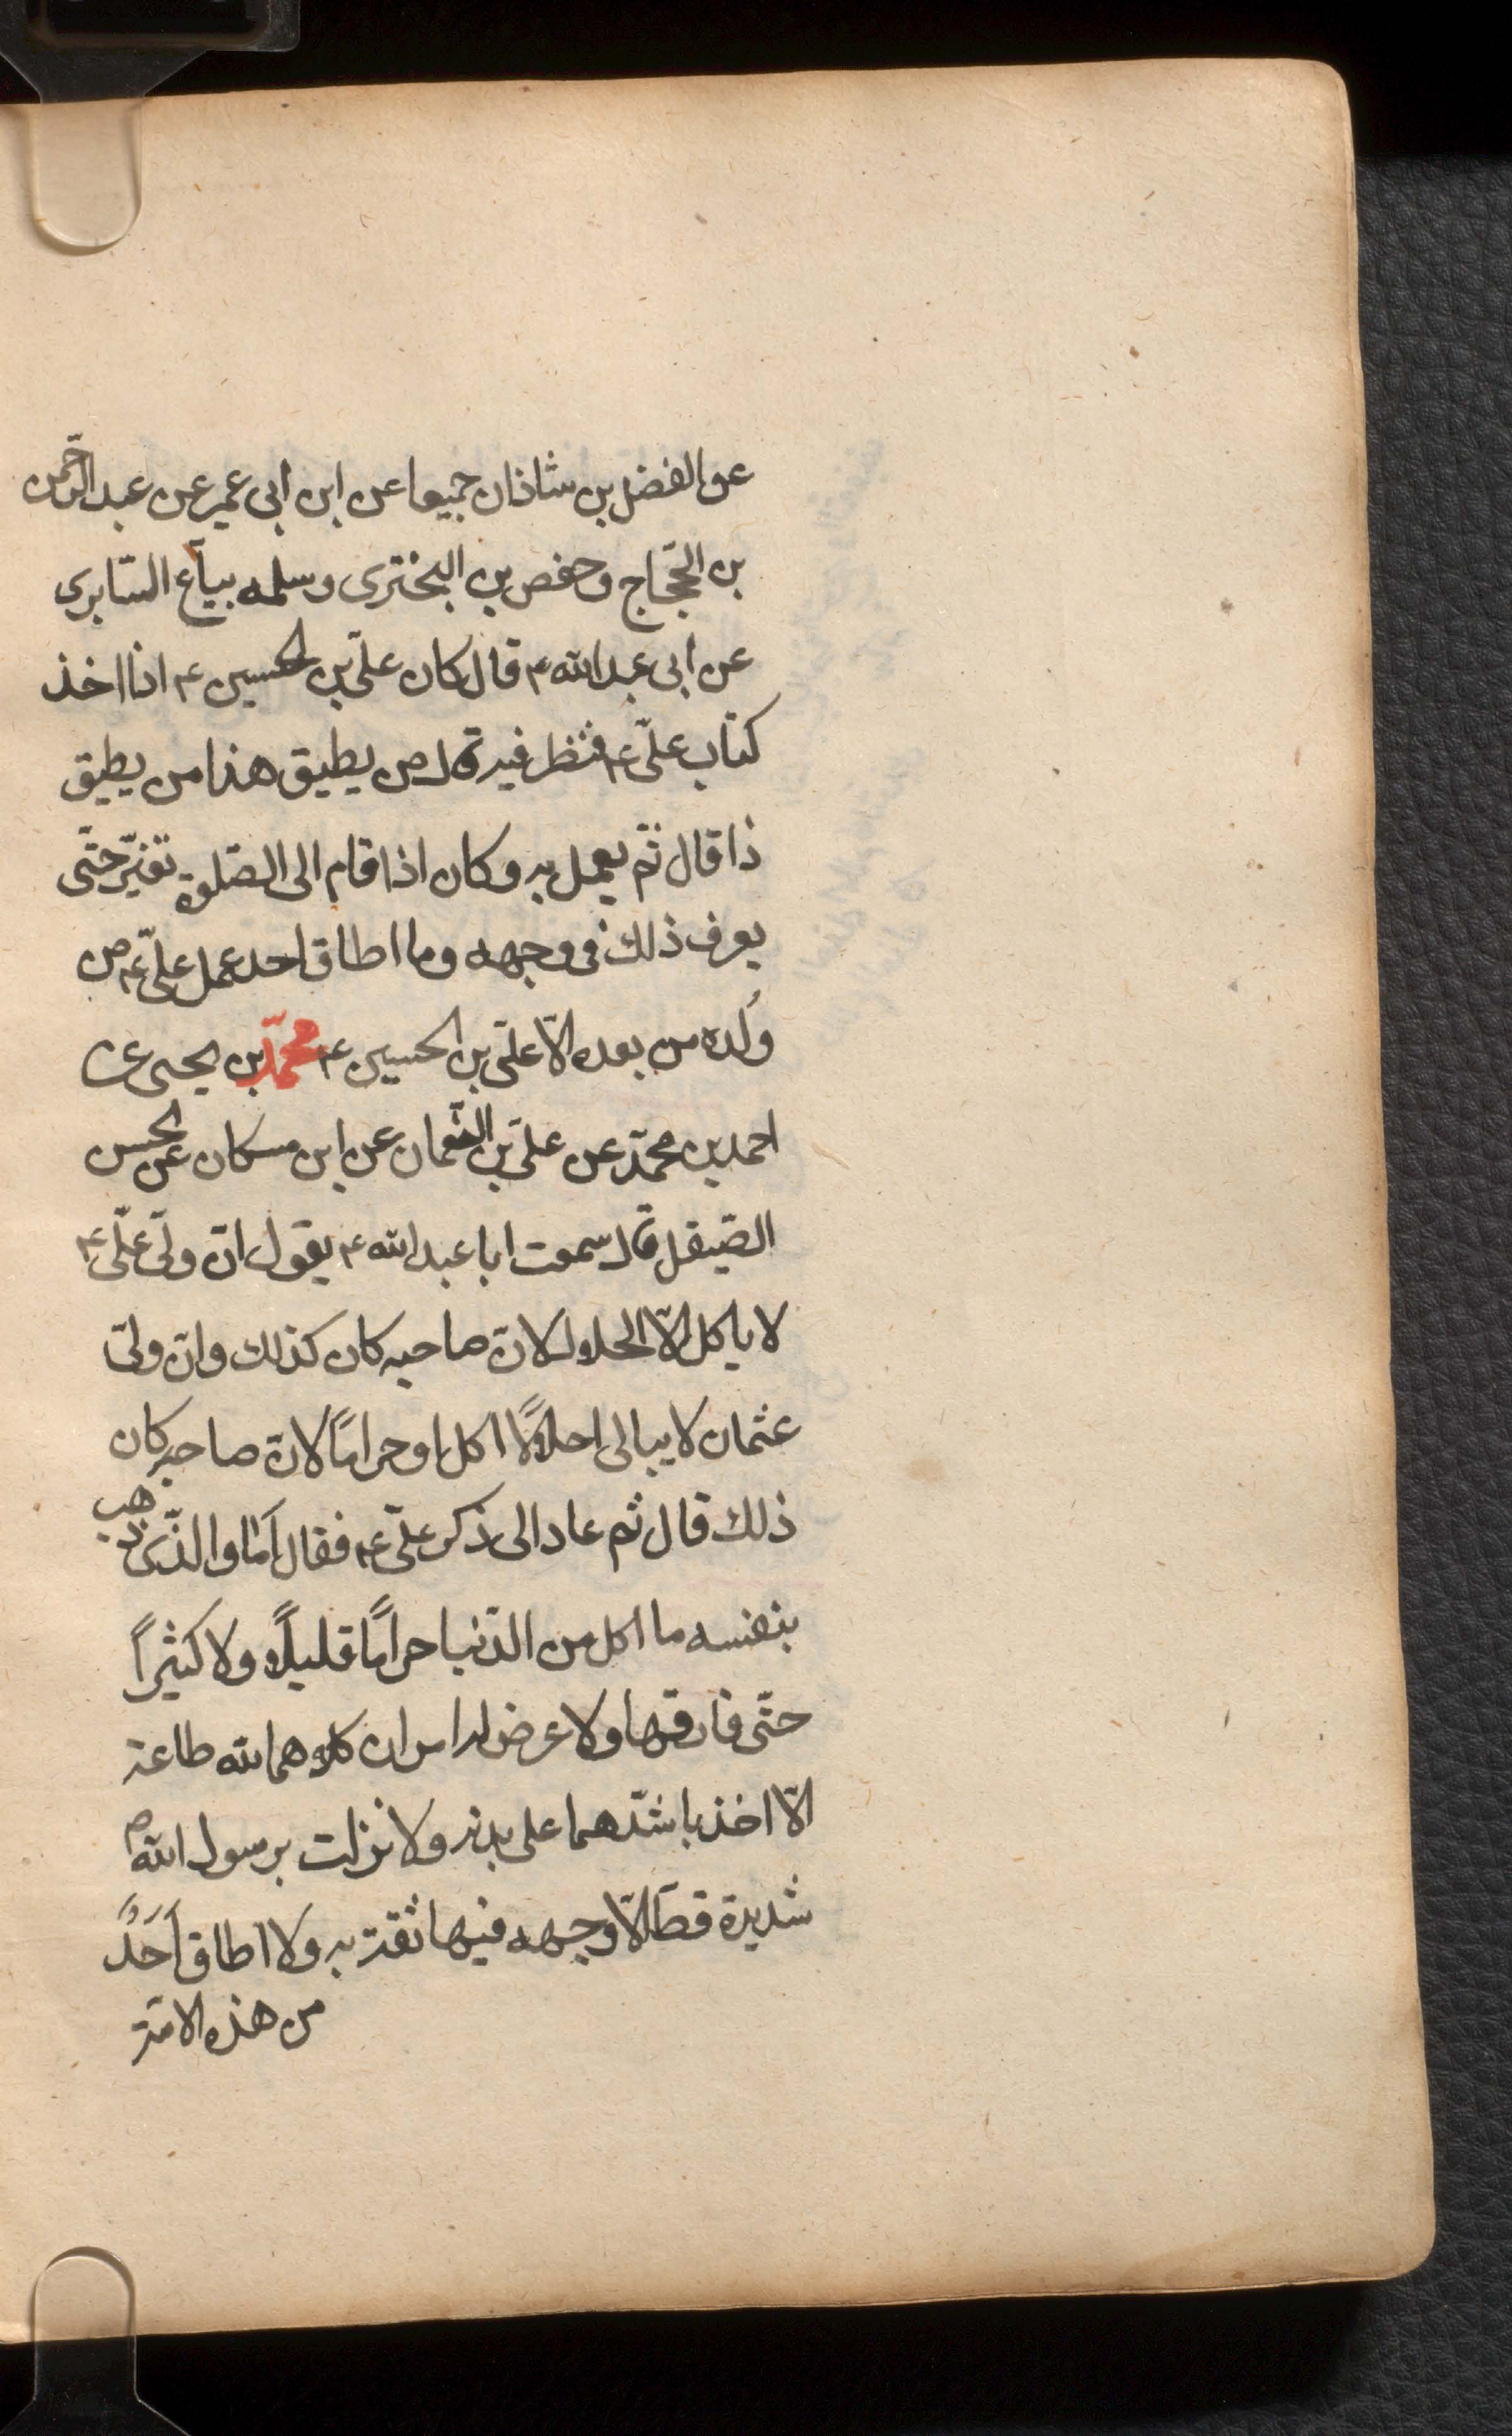 عن الفضل بن شاذان جميعا عن ابن ابى عمير عن عبد الرّحمن
بن الحجّاج وحفص بن البخترى وسلمه بيّاع السّابرى
عن ابى عبد الله ع قال كان علىّ بن الحسين ع اذا اخذ
كتاب علىّ ع فنظر فيه قال من يطيق هذا من يطيق
ذا قال ثم يعمل به وكان اذا قام الى الصّلوة تغيّر حتّى
يعرف ذلك فى وجهه وما اطاق احد عمل علىّ ع من
وُلده من بعده الّا علىّ بن الحسين ع محمّد بن يحيى عن
احمد بن محمّد عن علىّ بن النّعمان عن ابن مسكان عن الحسن
الصّيقل قال سمعت ابا عبد الله ع يقول انّ ولىّ علىّ ع
لا ياكل الّا الحلال لانّ صاحبه كان كذلك وانّ ولىّ
عثمان لا يبالى احلالًا اكل او حراماً لانّ صاحبه كان
ذلك قال ثم عاد الى ذكر علىّ ع فقال اَمَا والّذى ذهب
بنفسه ما اكل من الدّنيا حراماً قليلاً ولا كثيراً
حتّى فارقها ولا عرض له امران كلاهما لله طاعة
الّا اخذ باشدّهما على بدنه ولا نزلت برسول الله ص
شديدة قطّ الّا وجهه فيها ثقة به ولا اطاق اَحَدٌ
من هذه الامّة